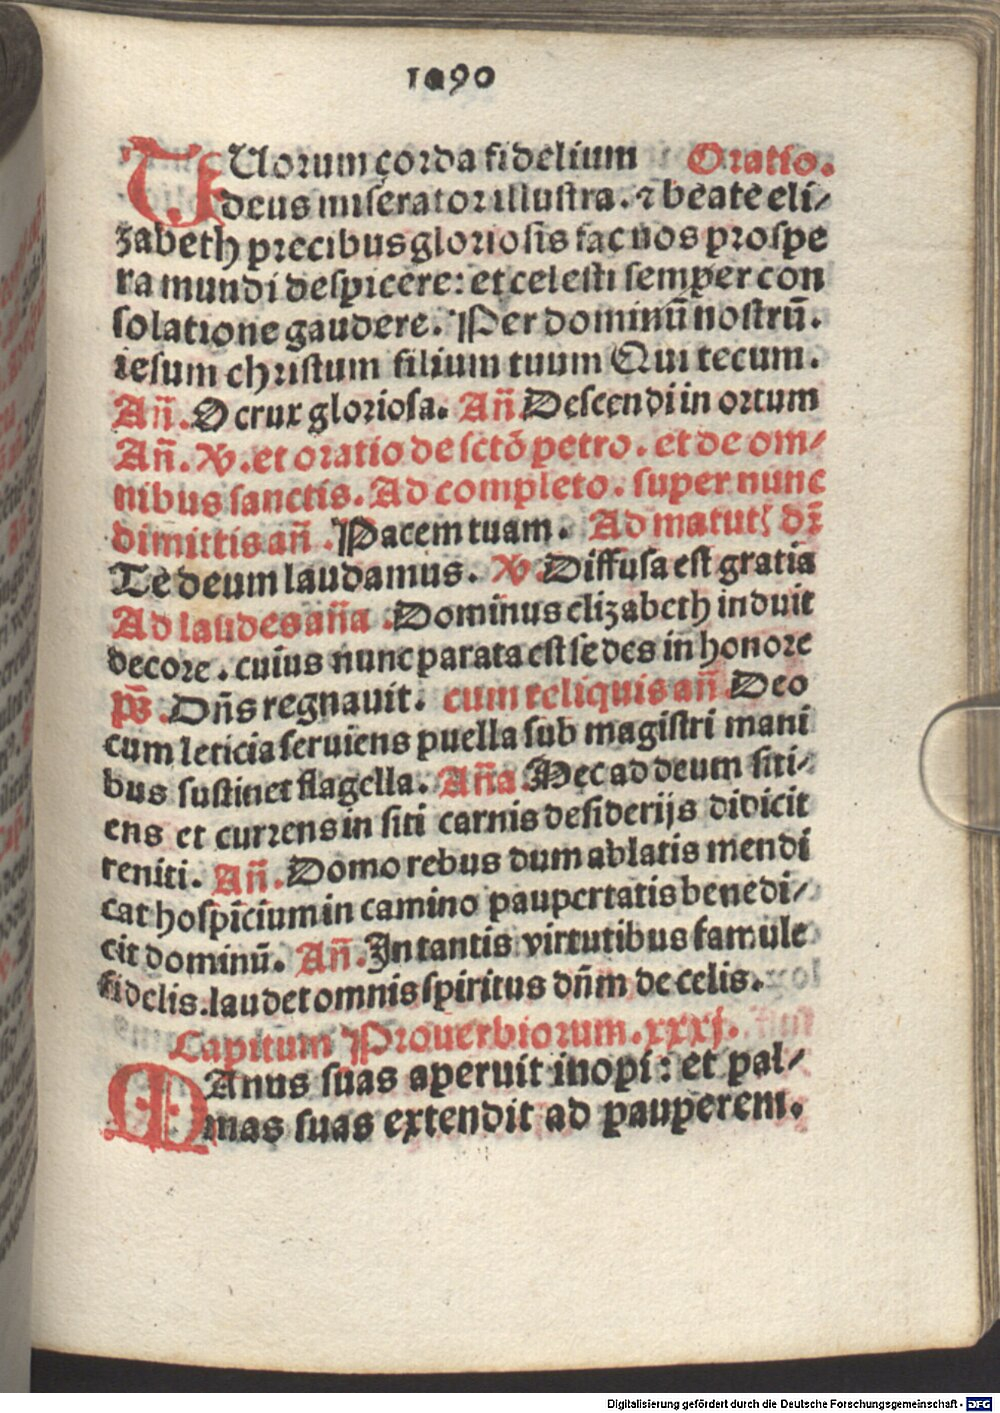 1090
TUorum corda fidelium Oratio.
deus miserator illustra. ⁊ beate eli/
zabeth precibus gloriosis fac nos prospe
ra mundi despicere: et celesti semper con
solatione gaudere. Per dominū nostrū.
iesum christum filium tuum Qui tecum.
Añ. O crux gloriosa. Añ. Descendi in ortum
Añ. ℣. et oratio de sctō petro. et de om/
nibus sanctis. Ad completo. super nunc
dimittis añ. Pacem tuam. Ad matut
Te deum laudamus. ℣. Diffusa est gratia
Ad laudes aña. Dominus elizabeth induit
decore. cuius nunc parata est sedes in honore
ps̄. Dñs regnauit. cum reliquis añ. Deo
cum leticia seruiens puella sub magistri mani
bus sustinet flagella. Aña. Hec ad deum siti/
ens et currens in siti carnis desiderijs didicit
reniti. Añ. Domo rebus dum ablatis mendi
cat hospicium in camino paupertatis benedi/
cit dominū. Añ. In tantis virtutibus famule
fidelis. laudet omnis spiritus dñm de celis.
Capitum Prouerbiorum. xxxj.
MAnus suas aperuit inopi: et pal/
mas suas extendit ad pauperem.
Digitalisierung gefördert durch die Deutsche Forschungsgemeinschaft - DFG